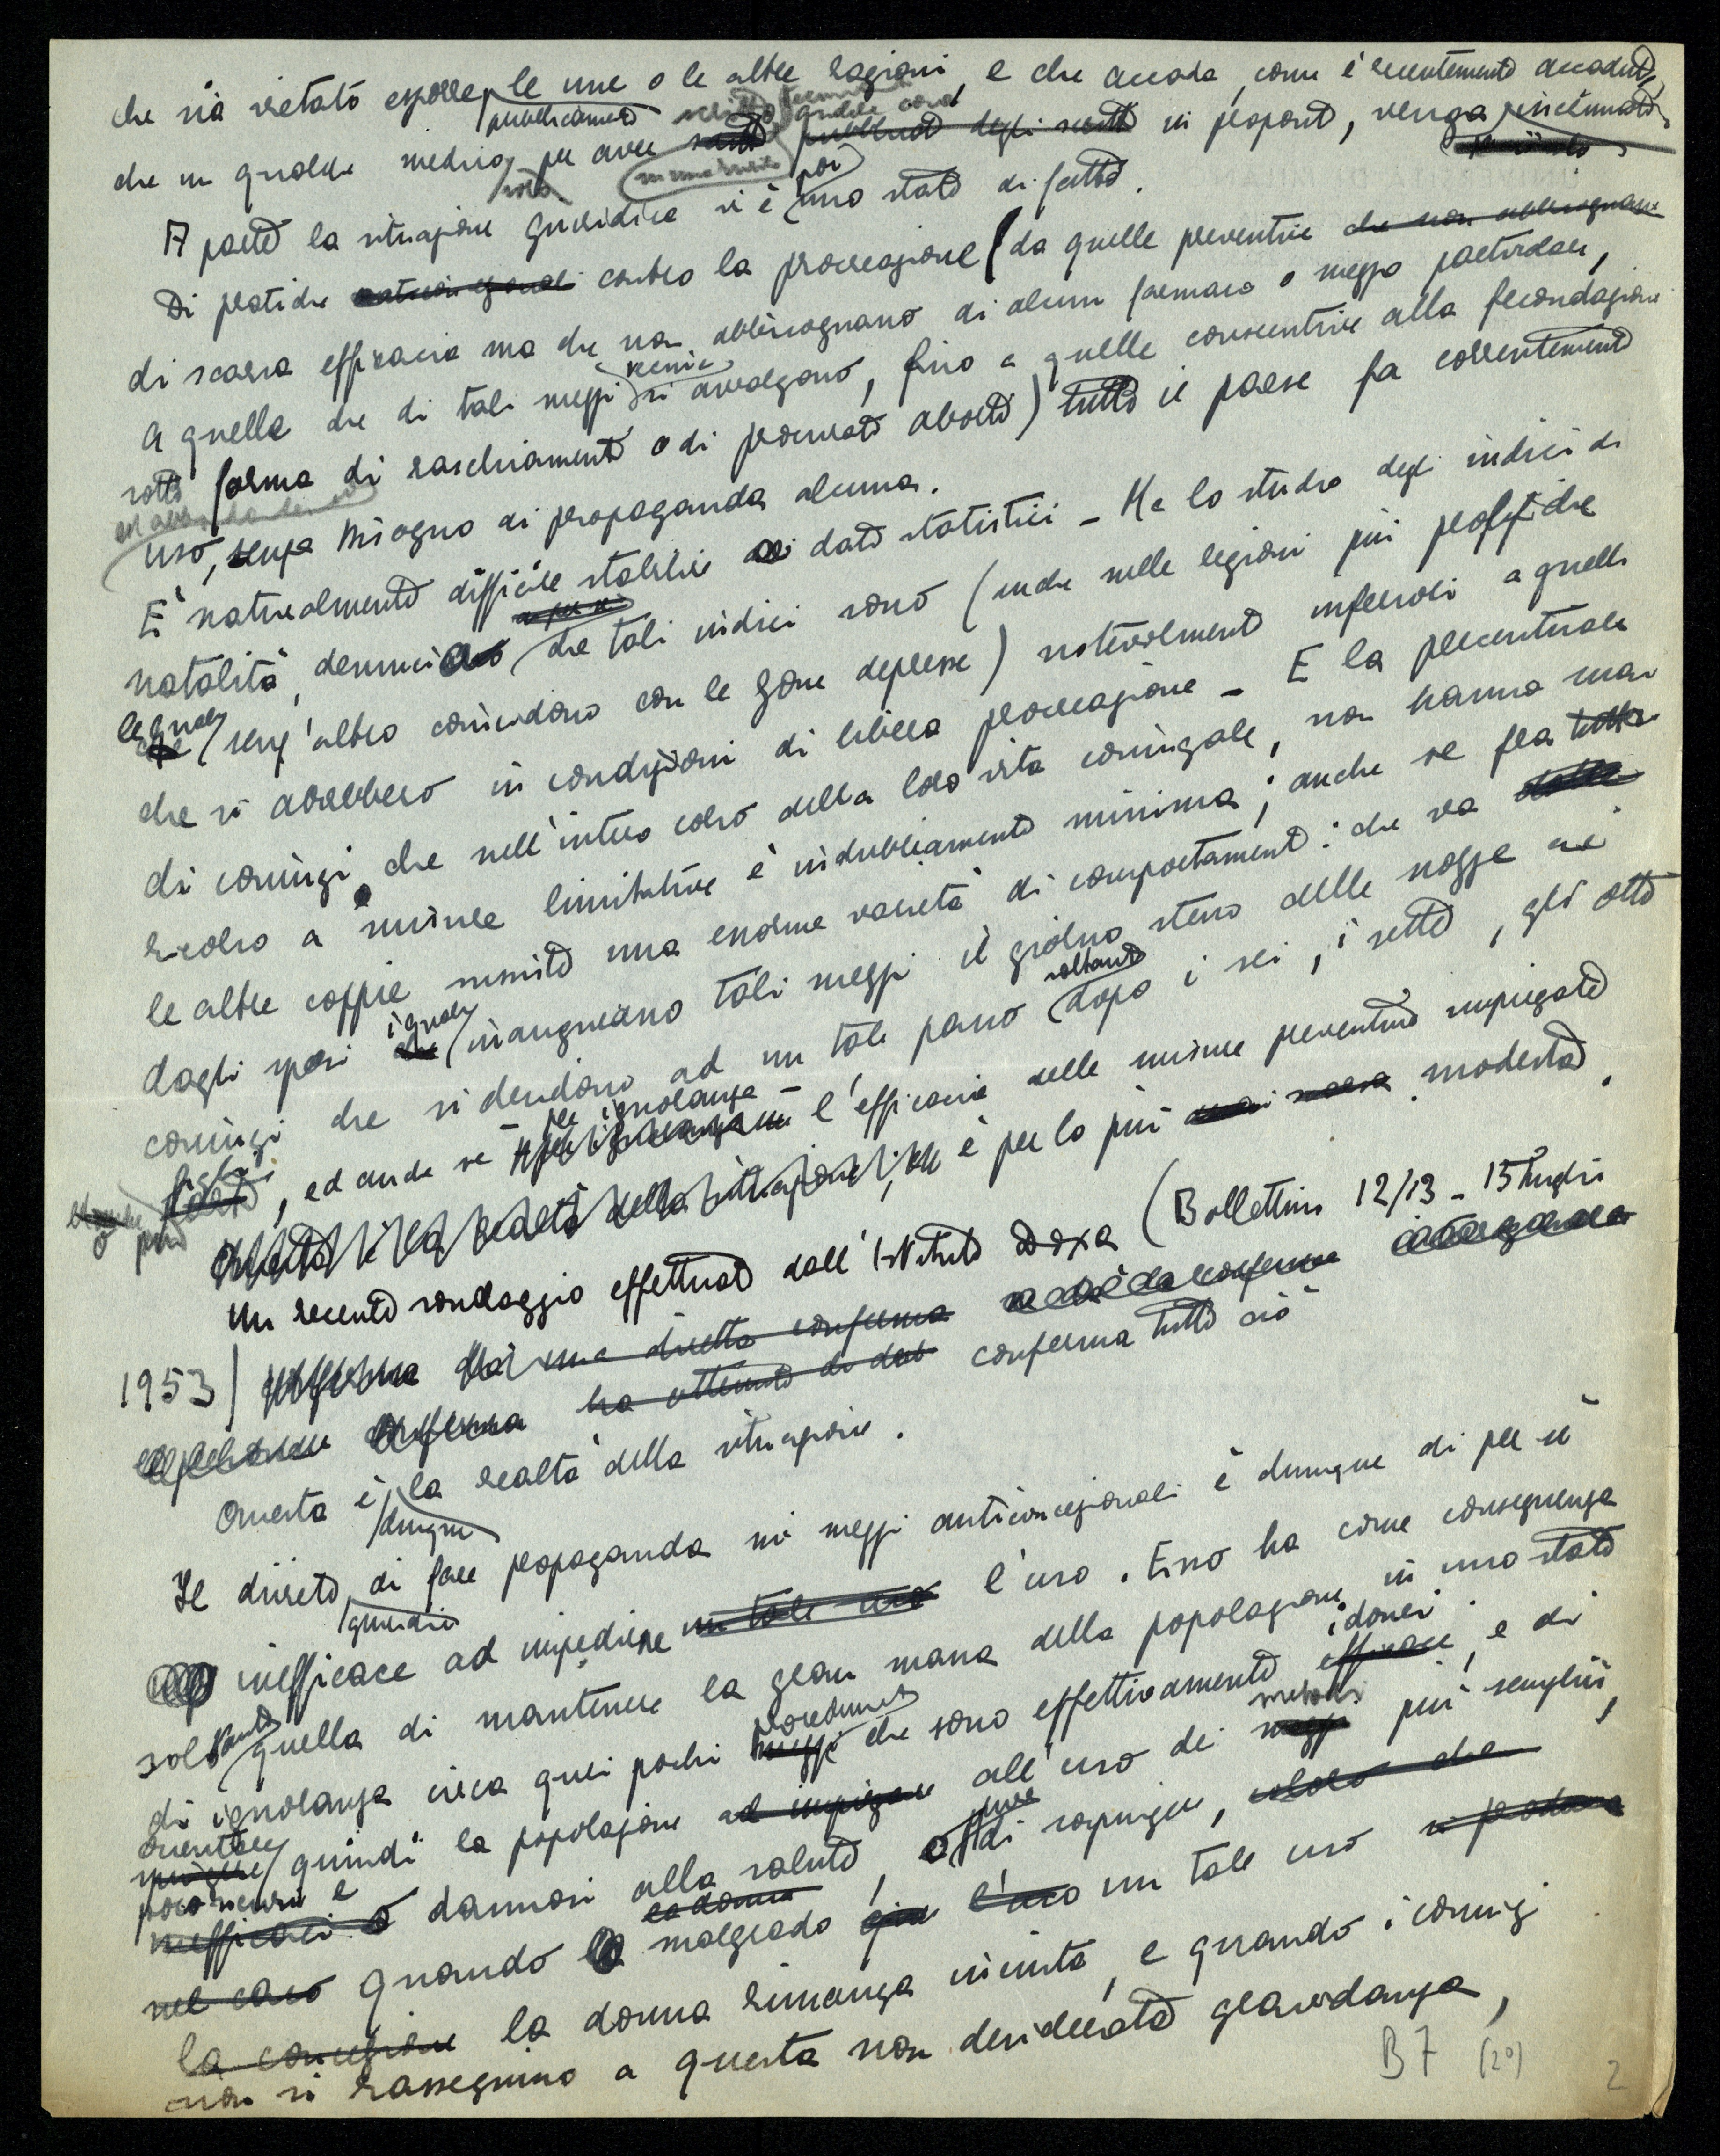 che sia vietato esporre pubblicamente le une o le altre ragioni, e che accada, come è recentemente accaduto,
che un qualche medico, per avere scritto qualche cosa in proposito, venga incriminato.
A parte la situazione giuridica vi è poi uno stato di fatto.
Di pratiche contro la procreazione (da quelle preventive che non abbisognano
di scarsa efficacia ma che non abbisognano di alcun farmaco o mezzo particolare,
a quelle che di tali mezzi si avvalgono, fino a quelle consecutive alla fecondazione
sotto forma di raschiamento o di procurato aborto) tutto il paese fa correntemente
uso, senza bisogno di propaganda alcuna.
È naturalmente difficile stabilire dati statistici - Ma lo studio degli indici di
natalità, denuncia che tali indici sono (anche nelle regioni più prolifiche
le quali senz'altro coincidono con le zone depresse) notevolmente inferiori a quelli
che si avrebbero in condizioni di libera procreazione - E la percentuale
di coniugi che nell'intero corso della loro vita coniugale, non hanno mai
ricorso a misure limitative è indubbiamente minima; anche se fra tutte
le altre coppie sussiste una enorme varietà di comportamenti: che va dalla
dagli sposi i quali inaugurano tali mezzi il giorno stesso delle nozze ai
coniugi che si decidono ad un tale passo soltanto dopo i sei, i sette, gli otto
figli, ed anche se - per ignoranza - l'efficacia delle misure preventive impiegate
è per lo più modesta.
Questa è la realtà della situazione
Un recente sondaggio effettuato dall'Istituto Doxa (Bollettino 12/13 - 15 luglio
1953) conferma una diretta conferma
ha ottenuto di dar conferma tutto ciò
Questa è dunque la realtà della situazione.
Il divieto giuridico di fare propaganda ai mezzi anticoncezionali è dunque di per sé
inefficace ad impedirne un tale uso l'uso. Esso ha come conseguenza
soltanto quella di mantenere la gran massa della popolazione in uno stato
di ignoranza circa quei pochi procedimenti che sono effettivamente efficaci idonei, e di
orientare quindi la popolazione ad impiegare all'uso dei metodi più semplici,
poco sicuri e inefficaci o dannosi alla salute, o pure di spingere, coloro che
nel caso quando la donna malgrado l'uso un tale uso si produca
la concezione la donna rimanga incinta, e quando i coniugi
non si rassegnino a questa non desiderata gravidanza,
B7 (2°) 2